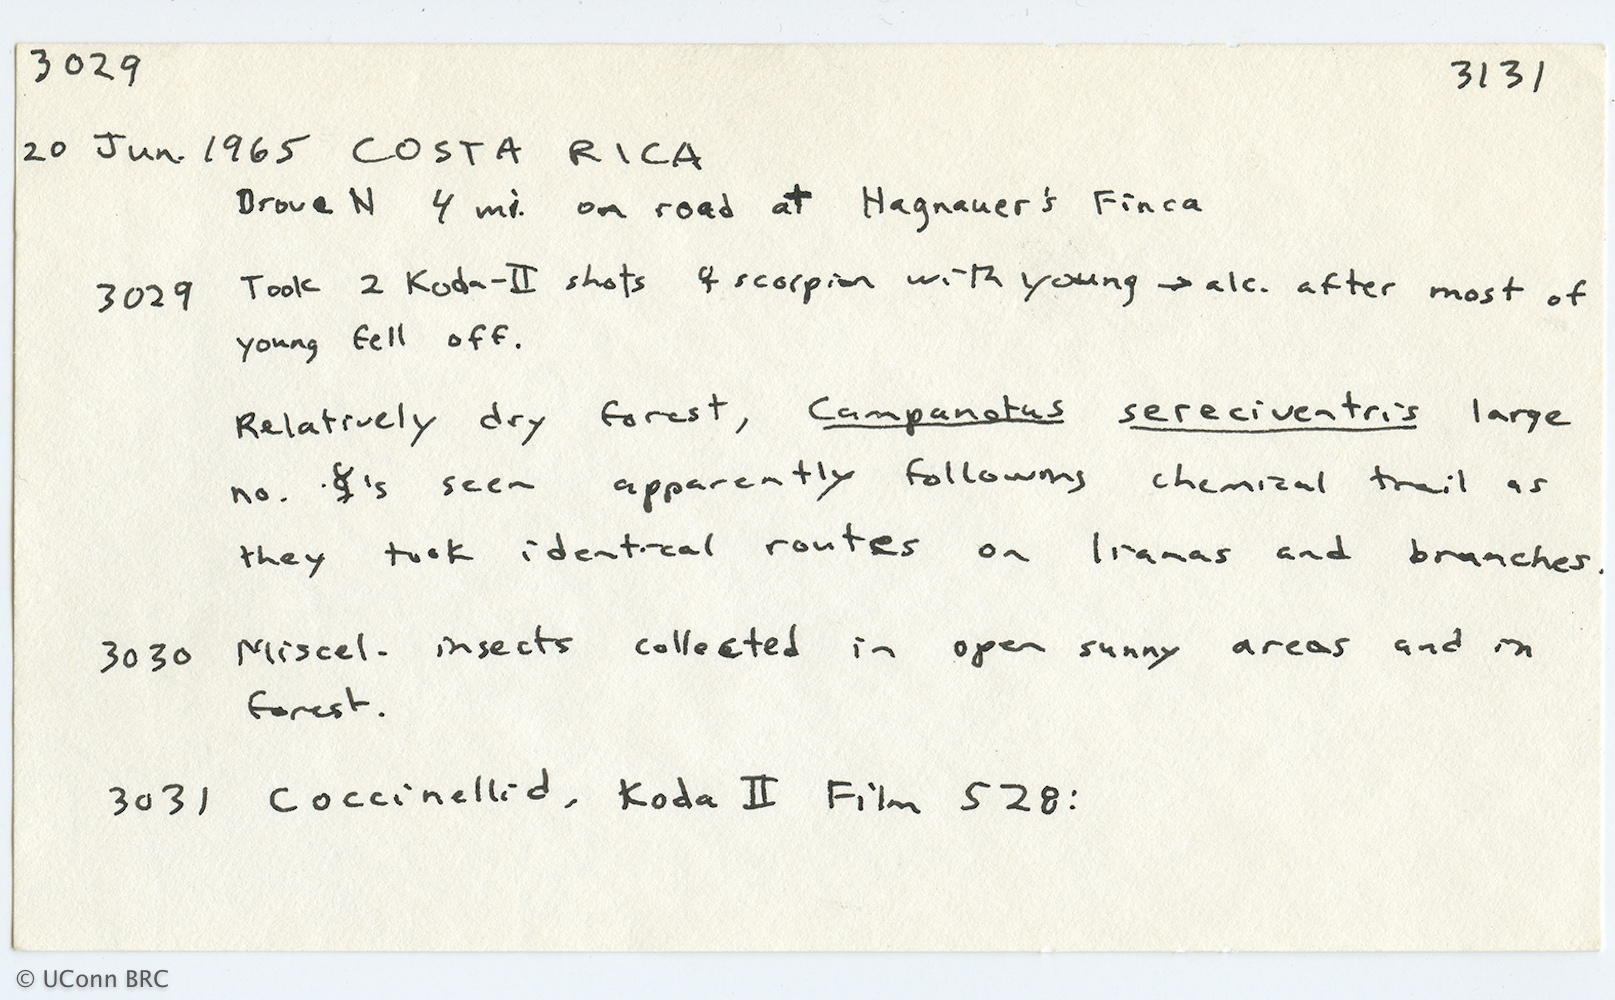 3029 3131
20 Jun. 1965 COSTA RICA
Drove N 4 mi. on road at Hagnauer's Finca
3029 Took 2 Koda-II shots ♀ scorpion with young → alc. after most of
young fell off.
Relatively dry forest, Campanotus sereciventris large
no. ☿'s seen apparently following chemical trail as
they took identical routes on lianas and branches.
3030 Miscel. insects collected in open sunny areas and in
forest.
3031 Coccinellid, Koda II Film 528:
© UConn BRC